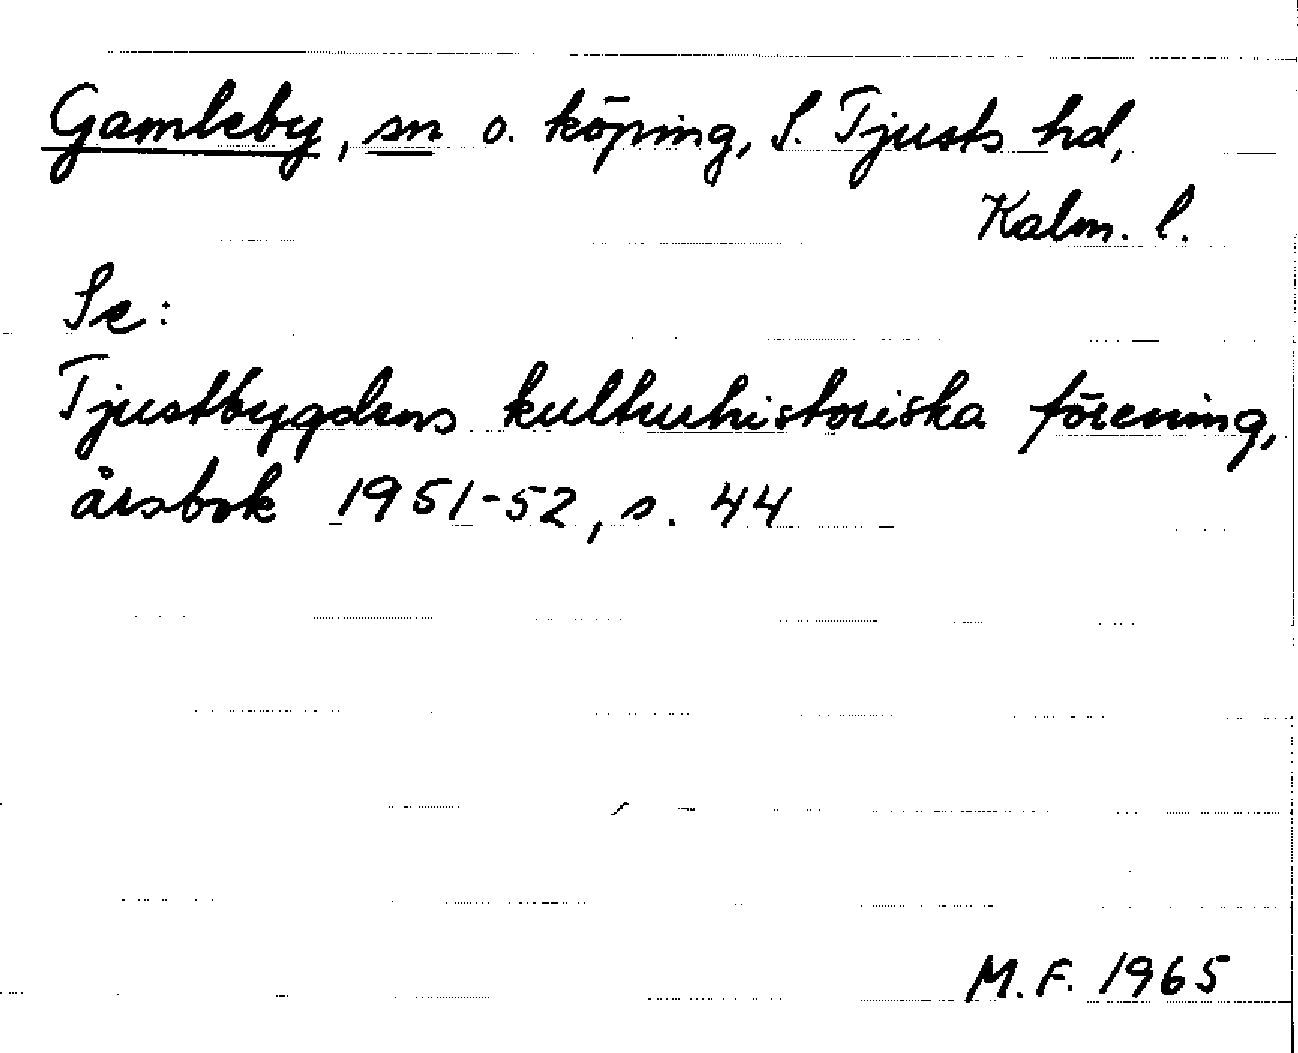 Gamleby, sn o. köping, S. Tjusts hd,
Kalm. l.
Se:
Tjustbygdens kulturhistoriska förening,
årsbok 1951-52, s. 44
M.F. 1965